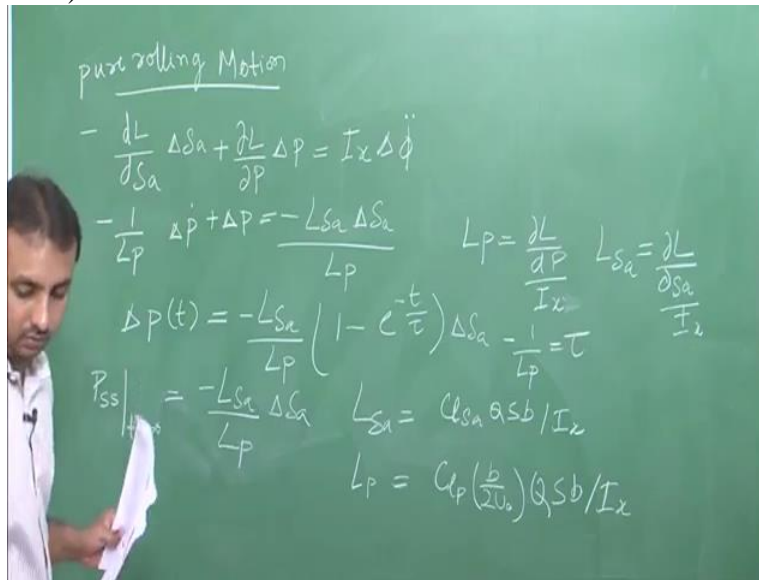 pure rolling Motion
- dL/dSa ΔSa + ∂L/∂P ΔP = Ix Δφ̈
- 1/Lp Δṗ + ΔP = -LSa ΔSa / Lp
Lp = ∂L/∂P / Ix
LSa = ∂L/∂Sa / Ix
Δp(t) = -LSa/Lp (1 - e^(-t/τ)) ΔSa
-1/Lp = τ
Pss| = -LSa/Lp ΔSa
LSa = ClSa QSb/Ix
Lp = Clp (b/2U₀) QSb/Ix